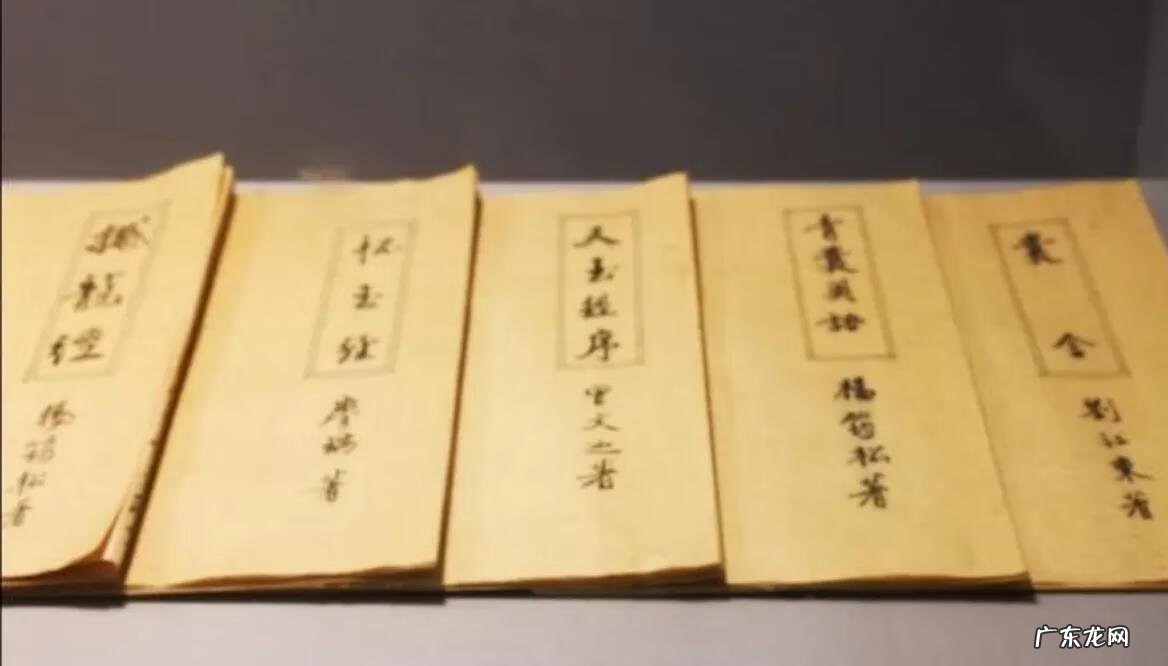 撼龍經
楊筠松著
怀玉經
廖瑀著
天玉經序
曾文辿著
青囊奥語
楊筠松著
囊金
劉江東著
广东龙网